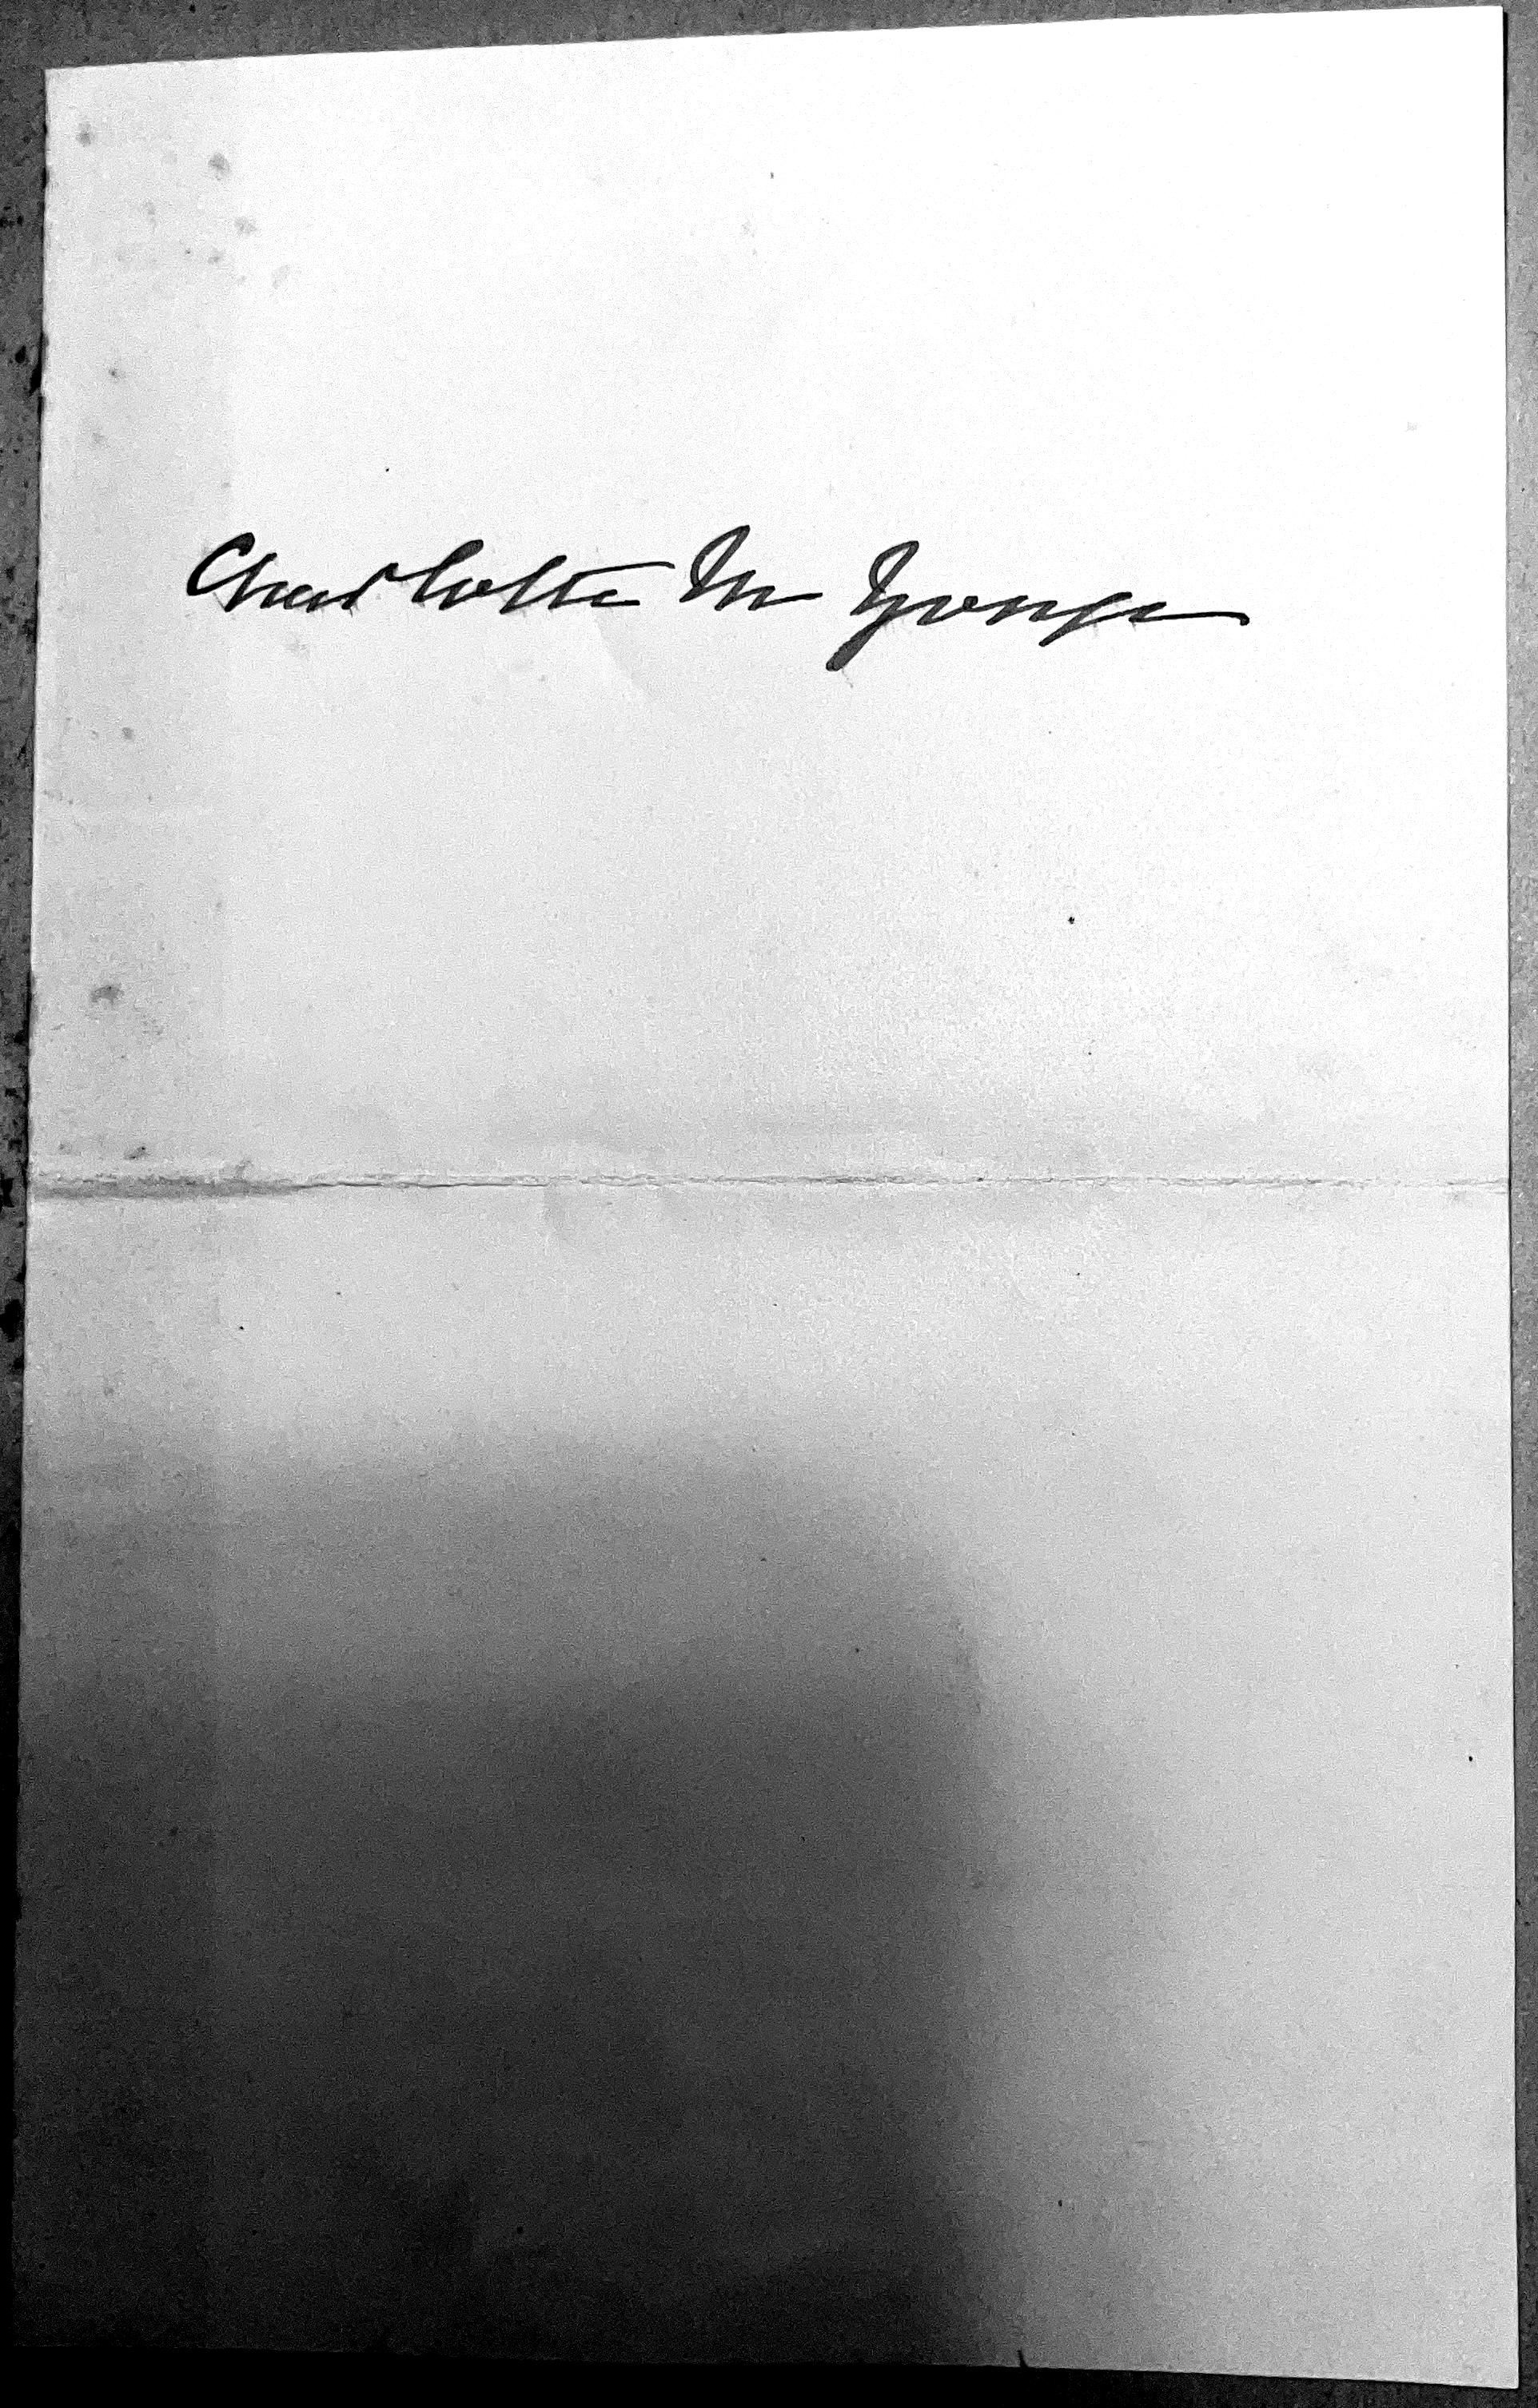 Charlotte M Yonge